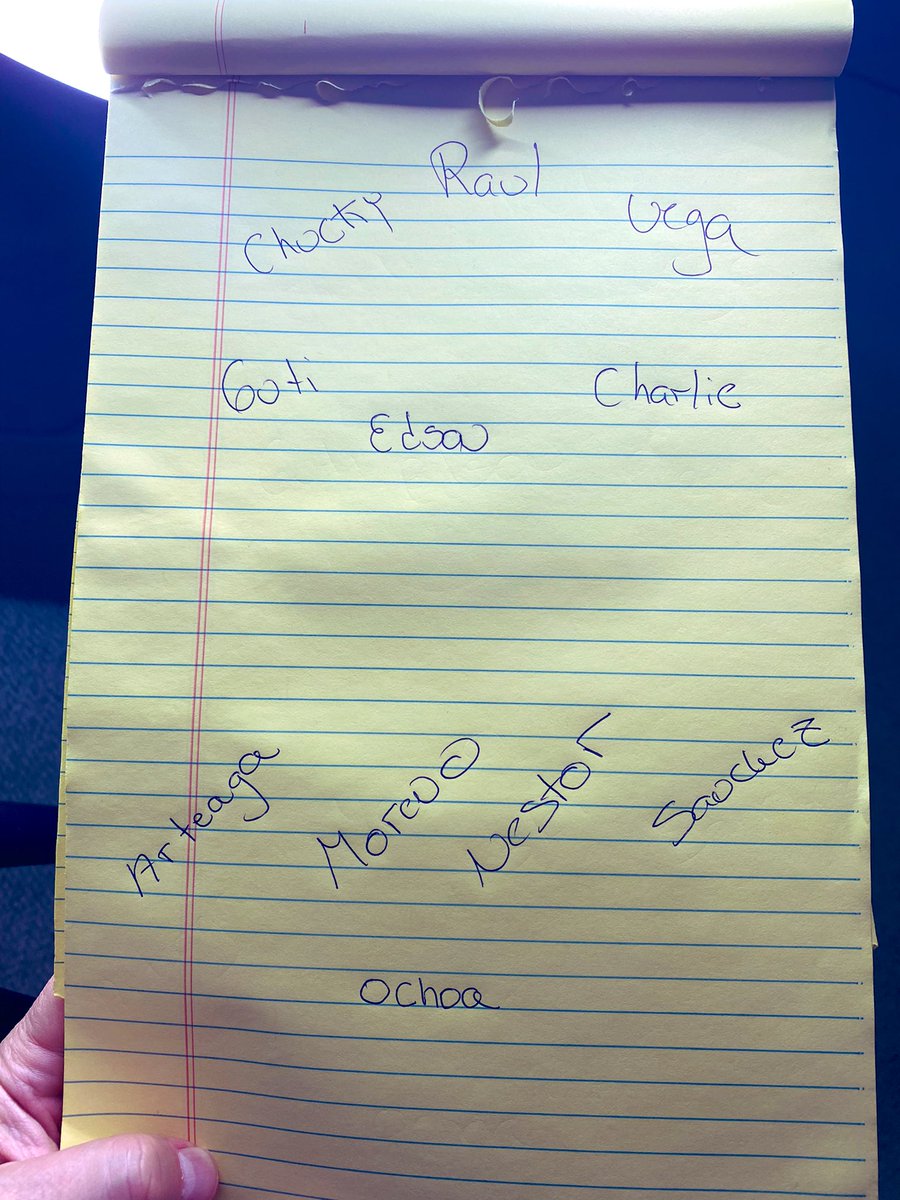 Raul
Chucky
Vega
Guti
Charlie
Edson
Arteaga
Moreno
Nestor
Sanchez
Ochoa